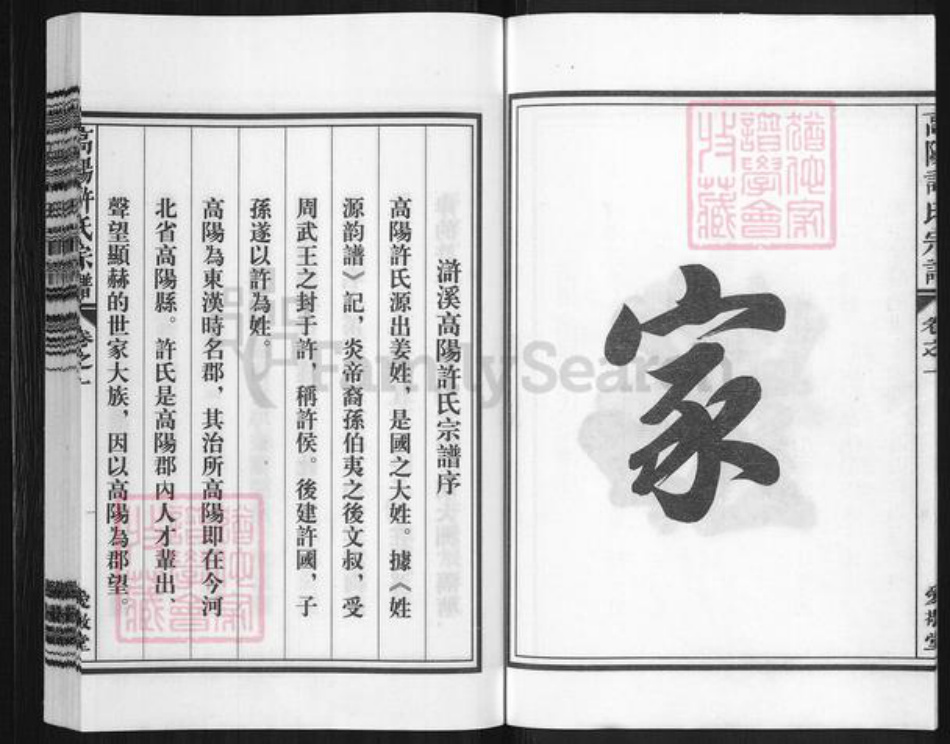 高陽許氏宗譜
卷之一
愛敬堂
家
猶他家譜學會收藏
滸溪高陽許氏宗譜序
高陽許氏源出姜姓，是國之大姓。據《姓
源韵譜》記，炎帝裔孫伯夷之後文叔，受
周武王之封于許，稱許侯。後建許國，子
孫遂以許為姓。
高陽為東漢時名郡，其治所高陽即在今河
北省高陽縣。許氏是高陽郡內人才輩出、
聲望顯赫的世家大族，因以高陽為郡望。
猶他家譜學會收藏
高陽許氏宗譜
卷之一
愛敬堂
FamilySearch